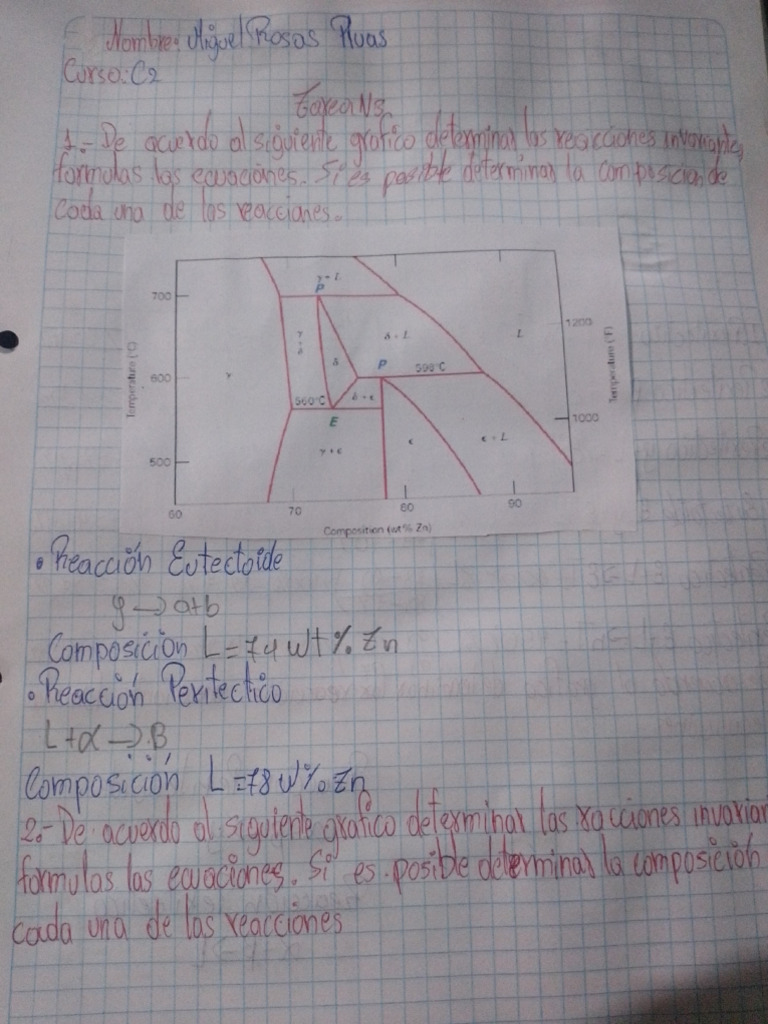 Nombre: Miguel Rosas Pluas
Curso: C2
Tarea N5
1.- De acuerdo al siguiente grafico determinar las reacciones invariante,
formulas las ecuaciones. Si es posible determinar la composicion de
cada una de las reacciones.
γ + L
P
700
1200
γ + δ
δ + L
L
Temperature (°C)
Temperature (°F)
δ
P
598°C
600
γ
560°C
δ + ε
1000
E
γ + ε
ε
ε + L
500
60
70
80
90
Composition (wt% Zn)
• Reacción Eutectoide
y → a+b
Composición L = 74 wt % Zn
• Reacción Peritectico
L + α → B
Composición L = 78 W% Zn
2.- De acuerdo al siguiente grafico determinar las racciones invarian
formulas las ecuaciones. Si es posible determinar la composición
cada una de las reacciones